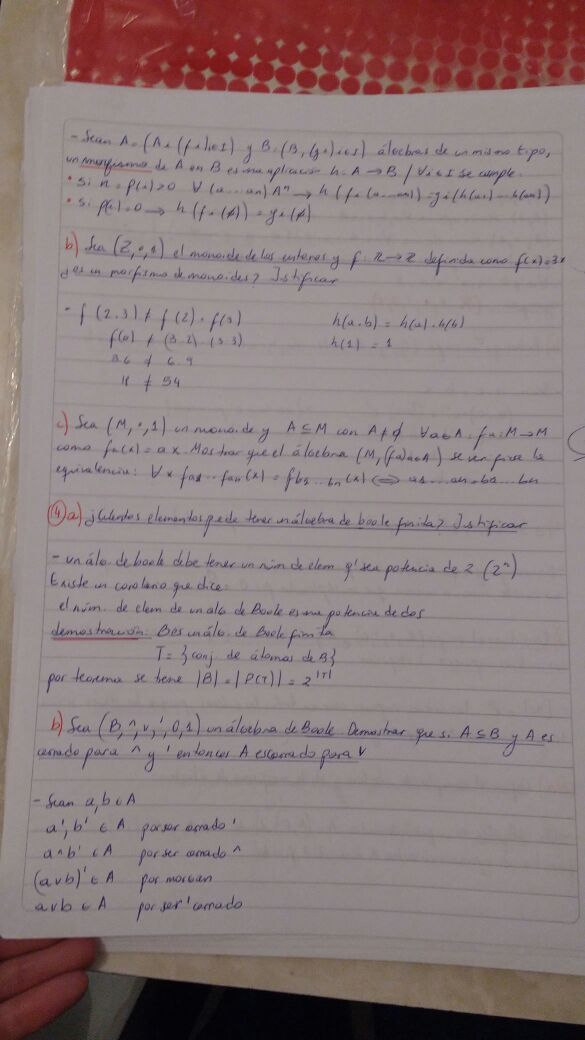 - Sean A=(A, (fi)i∈I) y B=(B, (gi)i∈I) álgebras de un mismo tipo,
un morfismo de A en B es una aplicación h: A→B / ∀i∈I se cumple.
• Si n = ρ(i)>0 ∀ (a...an) Aⁿ → h(fi(a...an))=gi(h(a1)...h(an))
• Si ρ(i)=0 → h(fi(∅)) = gi(∅)
b) Sea (Z, ·, 1) el monoide de los enteros y f: Z→Z definida como f(x)=3x
¿es un morfismo de monoides? Justificar
- f(2.3) ≠ f(2) · f(3) h(a.b) = h(a).h(b)
f(6) ≠ (3.2).(3.3) h(1) = 1
3.6 ≠ 6.9
18 ≠ 54
c) Sea (M, ·, 1) un monoide y A⊆M con A≠∅ ∀a∈A: fa: M→M
como fa(x)=ax. Mostrar que el álgebra (M, (fa)a∈A) se verifica la
equivalencia: ∀x fa1...fan(x) = fb1...bn(x) ⇔ a1...an=b1...bn
4) a) ¿Cuántos elementos puede tener un álgebra de boole finita? Justificar
- un álg. de boole debe tener un núm de elem q' sea potencia de 2 (2ⁿ)
Existe un corolario que dice:
el núm. de elem de un alg de Boole es una potencia de dos
demostración: B es un álg. de Boole finita
T= {conj. de átomos de B}
por teorema se tiene |B| = |P(T)| = 2^|T|
b) Sea (B, ^, v, ', 0, 1) un álgebra de Boole. Demostrar que si A⊆B y A es
cerrado para ^ y ' entonces A es cerrado para v
- Sean a,b ∈ A
a', b' ∈ A por ser cerrado '
a^b' ∈ A por ser cerrado ^
(avb)' ∈ A por morgan
avb ∈ A por ser ' cerrado